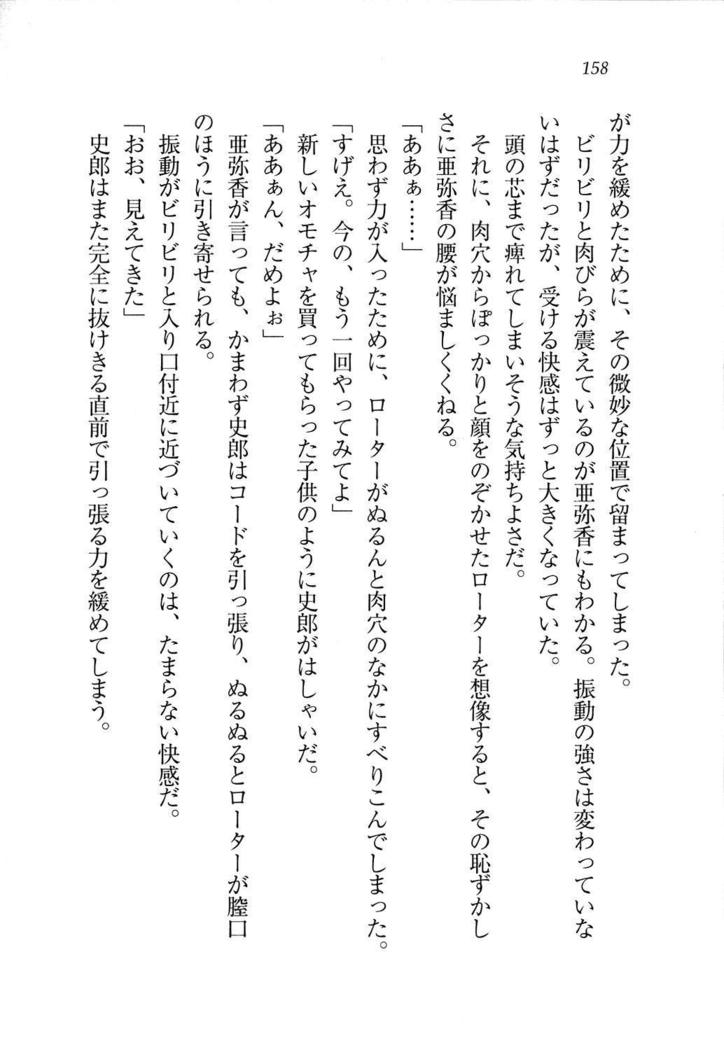 158
が力を緩めたために、その微妙な位置で留まってしまった。
ビリビリと肉びらが震えているのが亜弥香にもわかる。振動の強さは変わっていな
いはずだったが、受ける快感はずっと大きくなっていた。
頭の芯まで痺れてしまいそうな気持ちよさだ。
それに、肉穴からぽっかりと顔をのぞかせたローターを想像すると、その恥ずかし
さに亜弥香の腰が悩ましくくねる。
「ああぁ……」
思わず力が入ったために、ローターがぬるんと肉穴のなかにすべりこんでしまった。
「すげえ。今の、もう一回やってみてよ」
新しいオモチャを買ってもらった子供のように史郎がはしゃいだ。
「ああぁん、だめよぉ」
亜弥香が言っても、かまわず史郎はコードを引っ張り、ぬるぬるとローターが膣口
のほうに引き寄せられる。
振動がビリビリと入り口付近に近づいていくのは、たまらない快感だ。
「おお、見えてきた」
史郎はまた完全に抜けきる直前で引っ張る力を緩めてしまう。